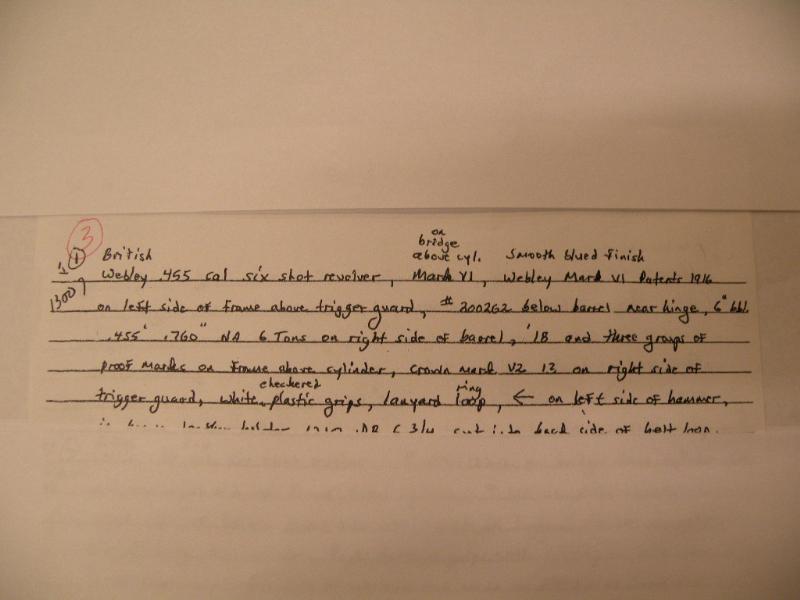 3
on
bridge
British above cyl. Smooth blued finish
Webley .455 cal six shot revolver, Mark VI, Webley Mark VI Patents 1916
1300
on left side of frame above trigger guard, # 200262 below barrel near hinge, 6" bbl
.455" .760" NA 6 Tons on right side of barrel, '18 and three groups of
proof marks on frame above cylinder, crown mark V2 13 on right side of
checkered ring
trigger guard, white plastic grips, lanyard loop, ← on left side of hammer,
cut into back side of belt loop.